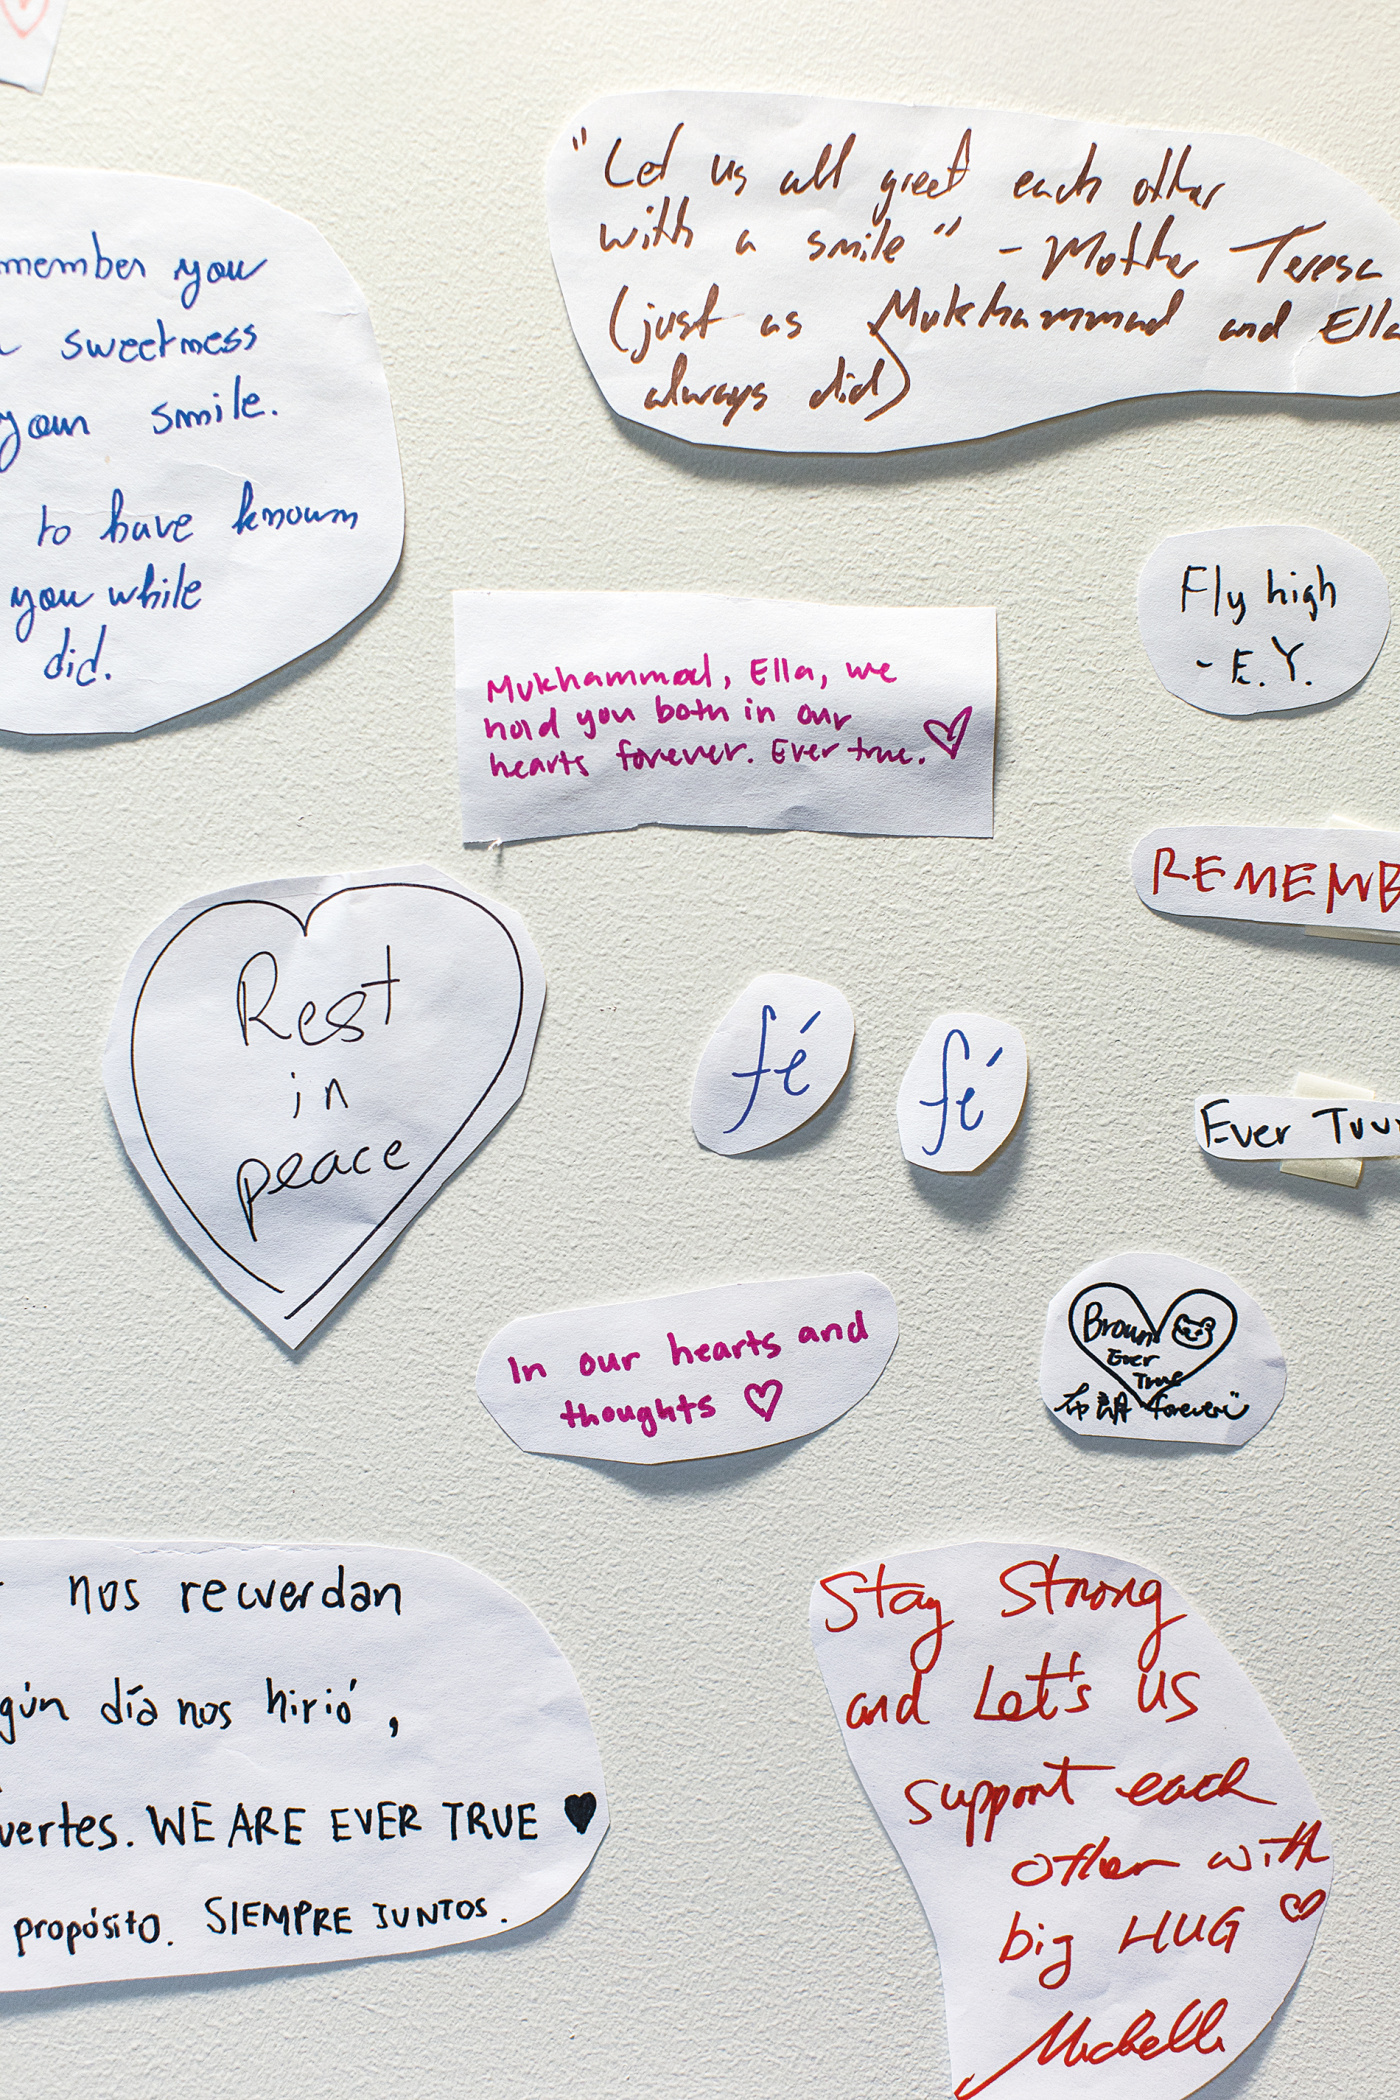 member you
sweetness
your smile.
to have known
you while
did.
"Let us all greet each other
with a smile" - Mother Teresa
(just as Mukhammad and Ella
always did)
Fly high
- E.Y.
Mukhammad, Ella, we
hold you both in our
hearts forever. Ever true.
REMEMB
Rest
in
peace
fé
fé
Ever Tuu
In our hearts and
thoughts
Brown
Ever
True
布朗 forever
nos recuerdan
gún día nos hirió,
uertes. WE ARE EVER TRUE
propósito. SIEMPRE JUNTOS.
Stay Strong
and Let's US
support each
other with
big HUG
Michelle